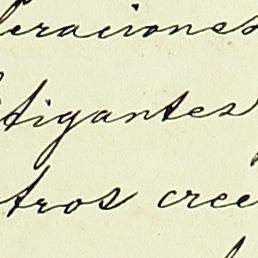 eraciones
tigantes
tros cree